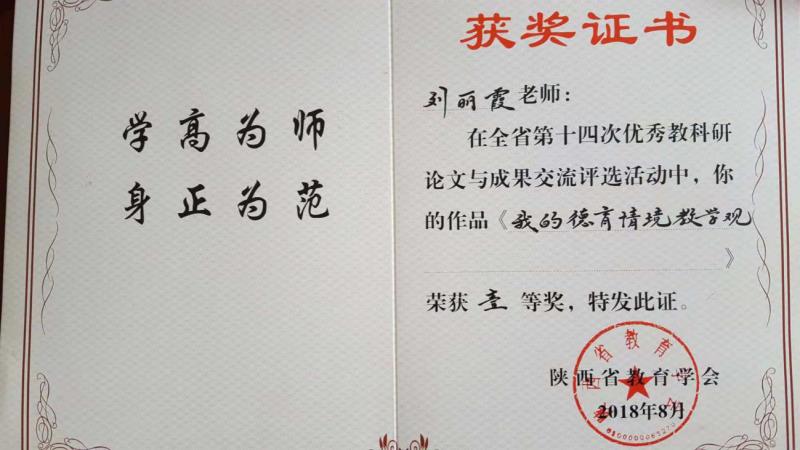 学高为师
身正为范
获奖证书
刘丽霞老师：
在全省第十四次优秀教科研
论文与成果交流评选活动中，你
的作品《我的德育情境教学观
》
荣获 壹 等奖，特发此证。
陕西省教育学会
2018年8月